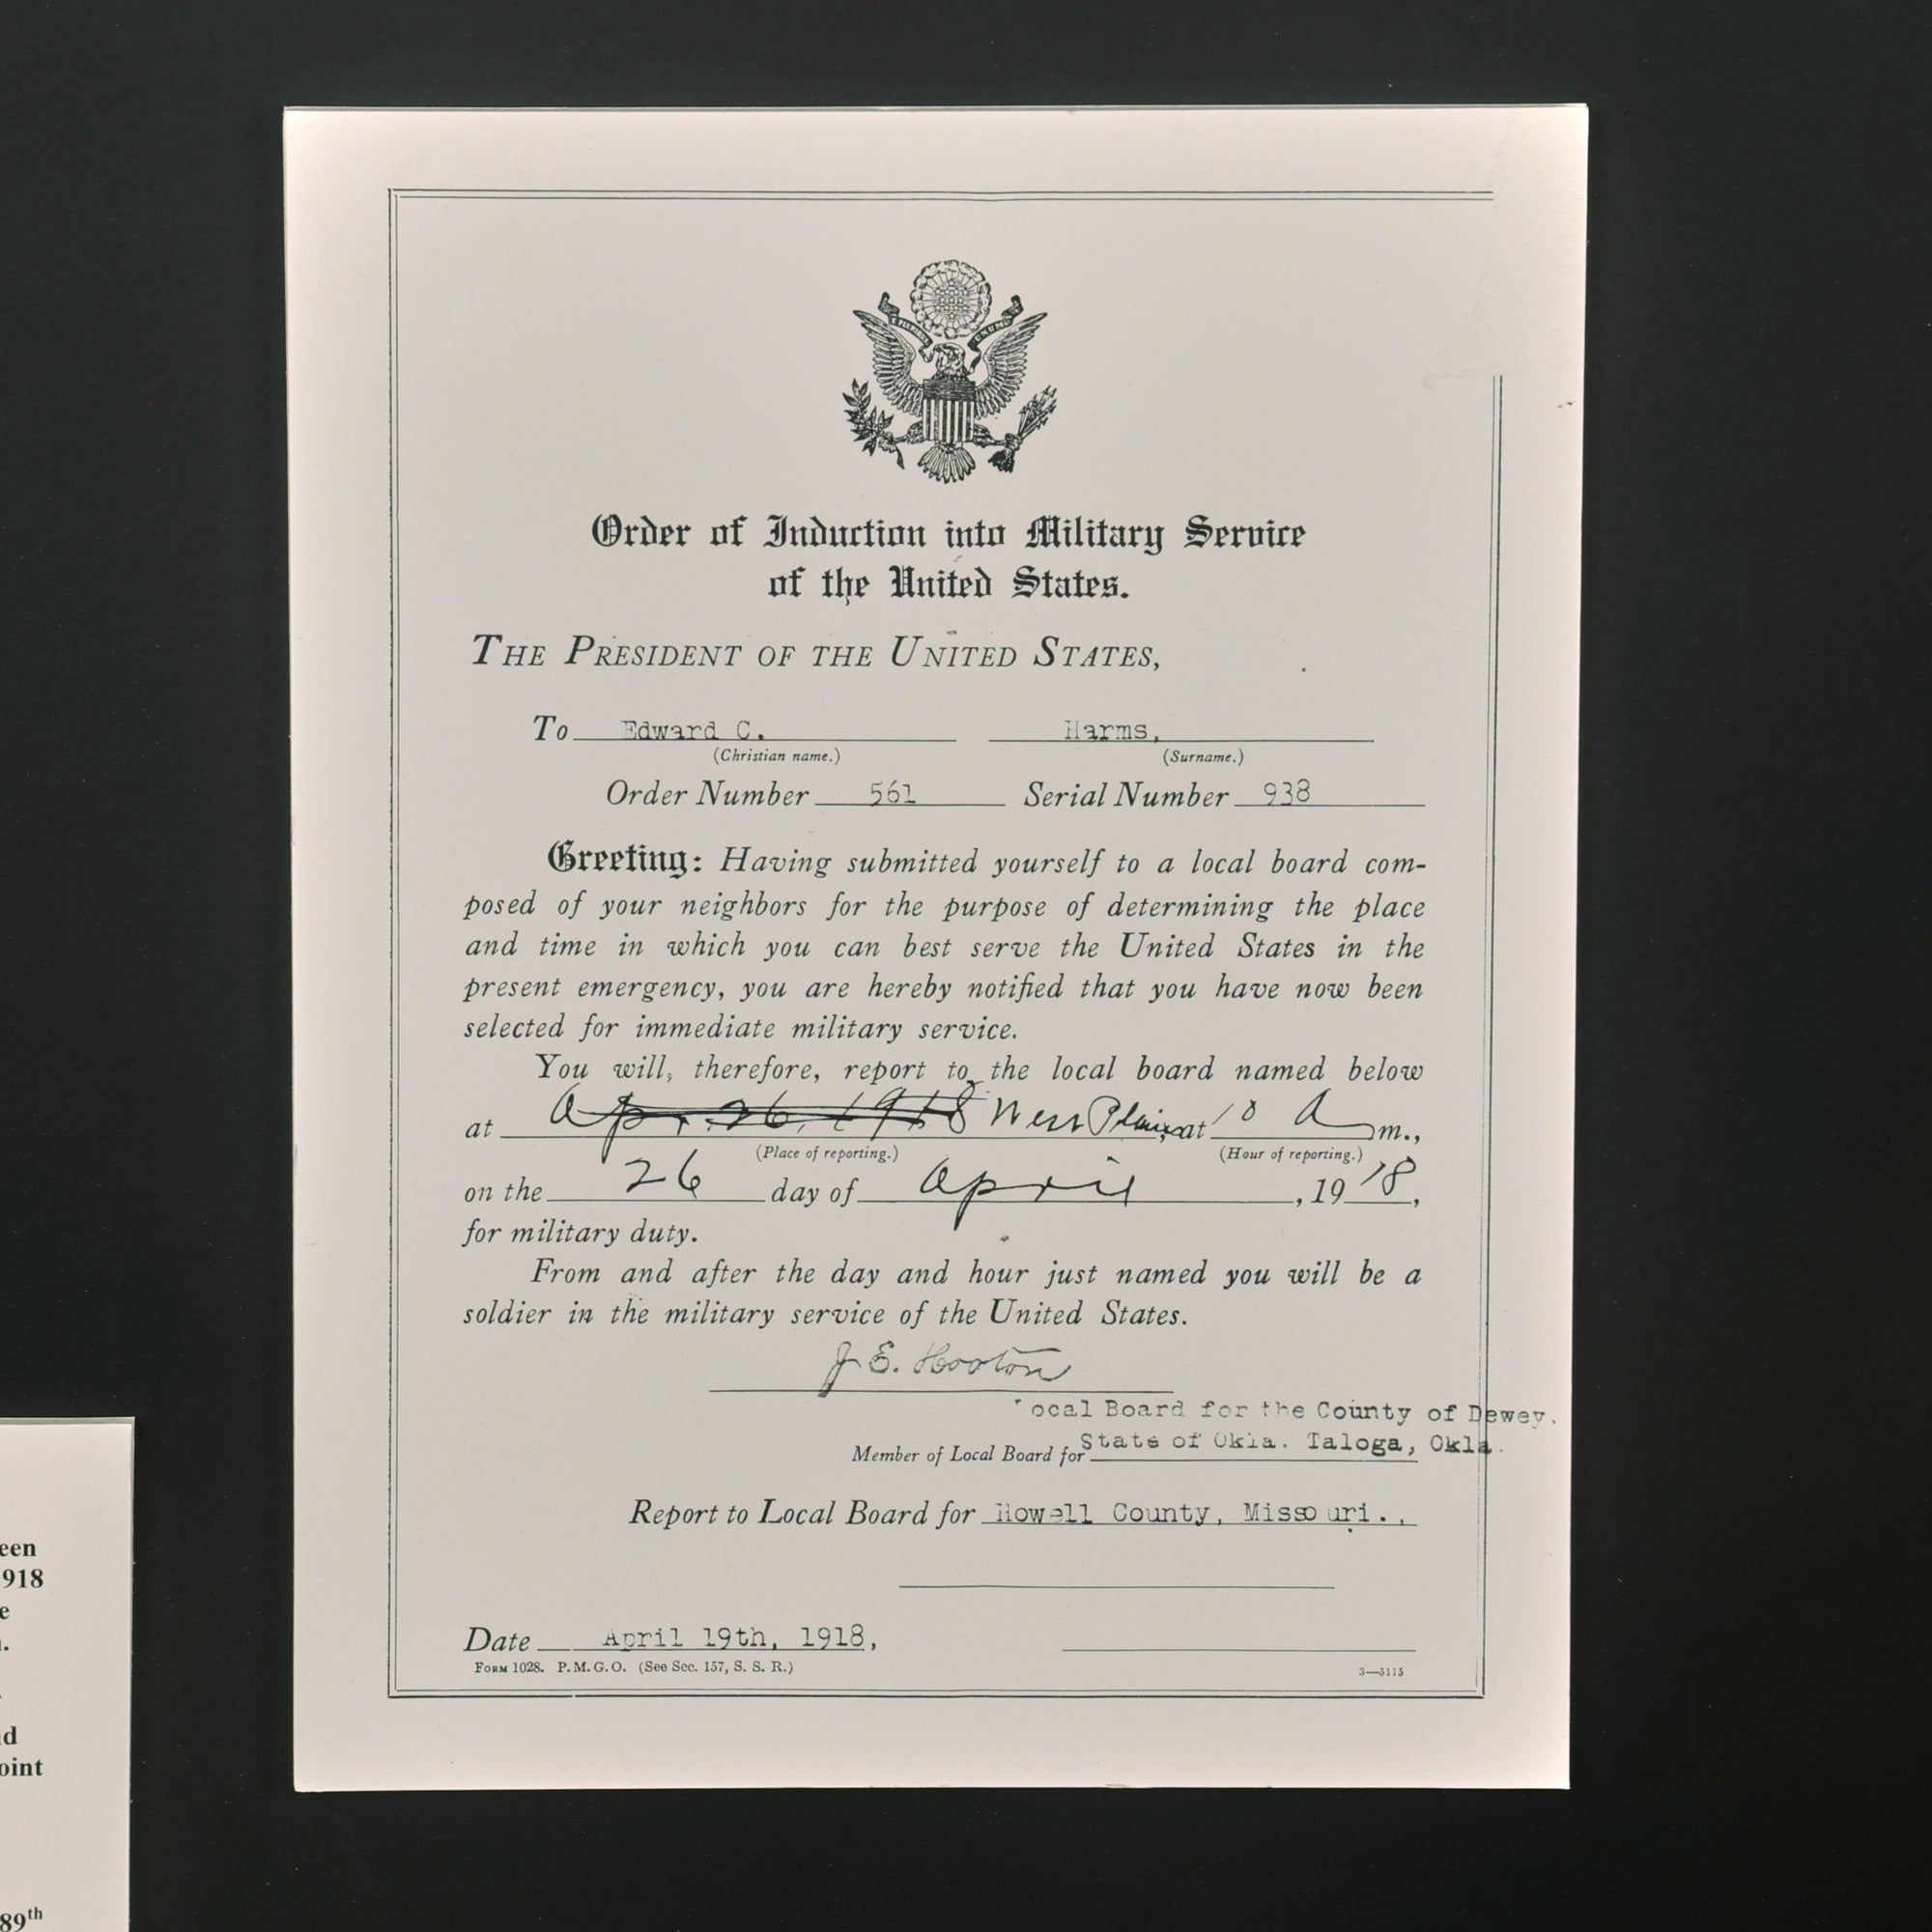 Order of Induction into Military Service
of the United States.
THE PRESIDENT OF THE UNITED STATES,
To Edward C. Harms,
(Christian name.) (Surname.)
Order Number 561 Serial Number 938
Greeting: Having submitted yourself to a local board com-
posed of your neighbors for the purpose of determining the place
and time in which you can best serve the United States in the
present emergency, you are hereby notified that you have now been
selected for immediate military service.
You will, therefore, report to the local board named below
at Apr. 26, 1918 West Plains, at 10 A m.,
(Place of reporting.) (Hour of reporting.)
on the 26 day of April, 1918,
for military duty.
From and after the day and hour just named you will be a
soldier in the military service of the United States.
J. E. Hooton
Local Board for the County of Dewey.
State of Okla. Taloga, Okla.
Member of Local Board for
Report to Local Board for Howell County, Missouri.,
Date April 19th, 1918,
FORM 1028. P.M.G.O. (See Sec. 157, S. S. R.) 3—5115
een
918
e
.
d
oint
89th